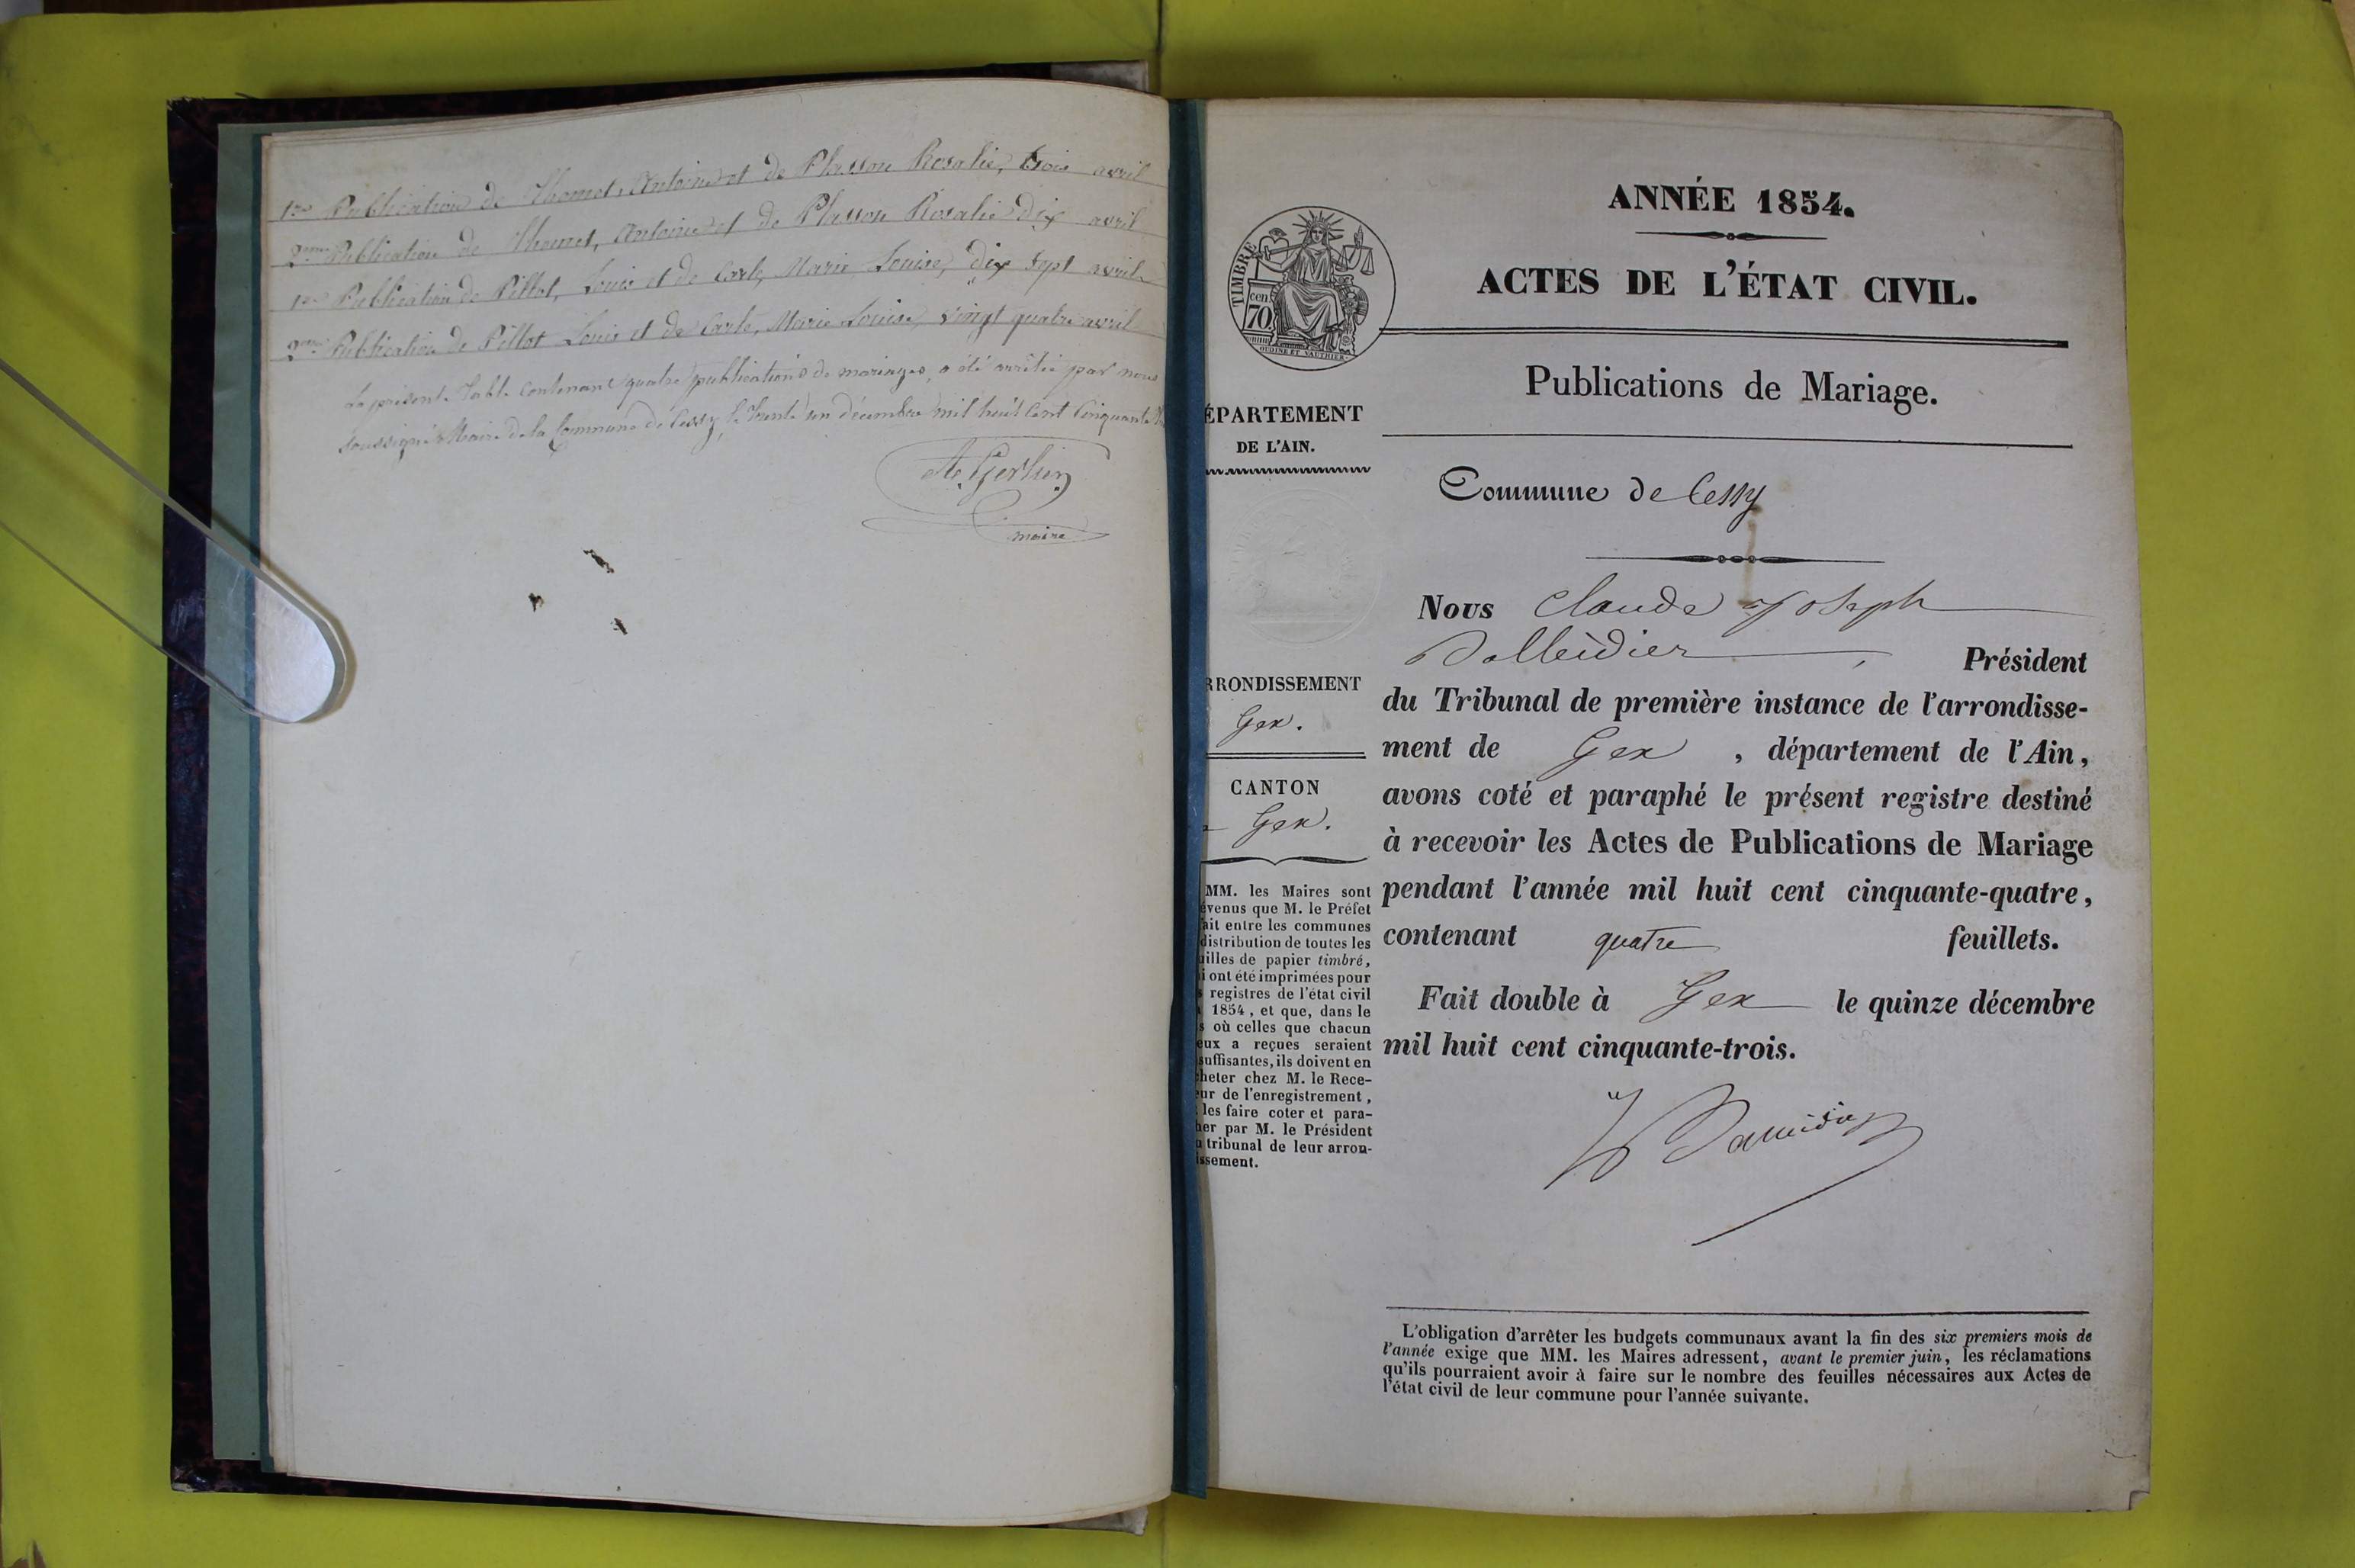 1re Publication de Thomet, Antoine et de Plasson Rosalie, trois avril
2eme Publication de Thomet, Antoine et de Plasson Rosalie dix avril
1re Publication de Pillot, Louis et de Carle, Marie Louise, dix sept avril
2eme Publication de Pillot Louis et de Carle, Marie Louise, vingt quatre avril
La présente Table contenant quatre publications de mariages, a été arrêtée par nous
soussigné Maire de la Commune de Cessy, le trente un décembre mil huit cent cinquante
maire
ANNÉE 1854.
ACTES DE L'ÉTAT CIVIL.
TIMBRE
70 cen.
OUDINÉ ET VAUTHIER
Publications de Mariage.
ÉPARTEMENT
DE L'AIN.
Commune de Cessy
Nous Claude Joseph
Président
RRONDISSEMENT
Gex.
CANTON
Gex.
du Tribunal de première instance de l'arrondisse-
ment de Gex, département de l'Ain,
avons coté et paraphé le présent registre destiné
à recevoir les Actes de Publications de Mariage
pendant l'année mil huit cent cinquante-quatre,
contenant quatre feuillets.
Fait double à Gex le quinze décembre
mil huit cent cinquante-trois.
MM. les Maires sont
évenus que M. le Préfet
ait entre les communes
distribution de toutes les
uilles de papier timbré,
i ont été imprimées pour
s registres de l'état civil
1854, et que, dans le
s où celles que chacun
eux a reçues seraient
suffisantes, ils doivent en
cheter chez M. le Rece-
eur de l'enregistrement,
les faire coter et para-
her par M. le Président
u tribunal de leur arron-
issement.
L'obligation d'arrêter les budgets communaux avant la fin des six premiers mois de
l'année exige que MM. les Maires adressent, avant le premier juin, les réclamations
qu'ils pourraient avoir à faire sur le nombre des feuilles nécessaires aux Actes de
l'état civil de leur commune pour l'année suivante.